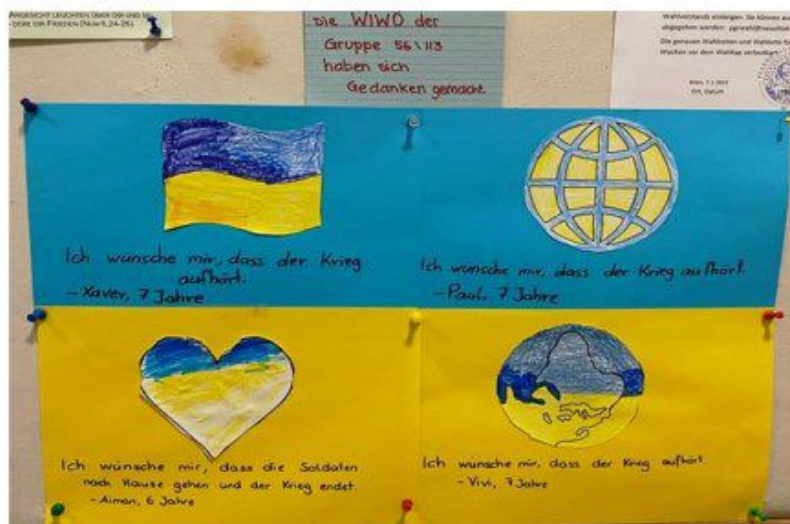 ANGESICHT LEUCHTEN ÜBER DIR UND
DIR FRIEDEN (NUM 6,24-26)
Die WIWO der
Gruppe 56\113
haben sich
Gedanken gemacht.
Wahlvorstands einlangen. Sie können
abgegeben werden:
Die genauen Wahlzeiten und Wahlorte
Wochen vor dem Wahltag
Ort, Datum
Ich wünsche mir, dass der Krieg
aufhört.
-Xaver, 7 Jahre
Ich wünsche mir, dass der Krieg aufhört.
-Paul, 7 Jahre
Ich wünsche mir, dass die Soldaten
nach Hause gehen und der Krieg endet.
-Aiman, 6 Jahre
Ich wünsche mir, dass der Krieg aufhört.
-Vivi, 7 Jahre